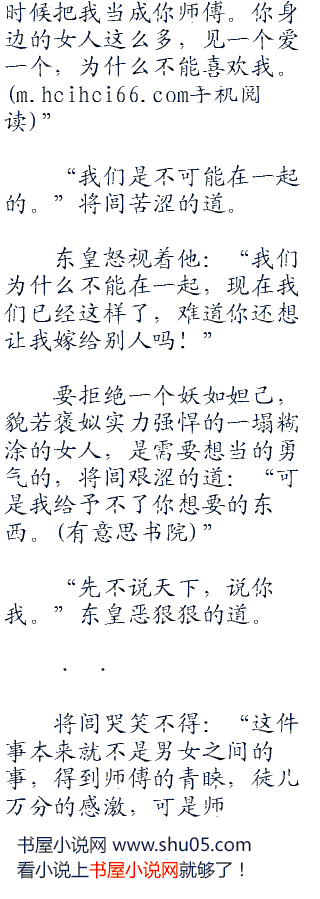 时候把我当成你师傅。你身
边的女人这么多，见一个爱
一个，为什么不能喜欢我。
(m.hcihci66.com手机阅
读)”
“我们是不可能在一起
的。”将闾苦涩的道。
东皇怒视着他：“我们
为什么不能在一起，现在我
们已经这样了，难道你还想
让我嫁给别人吗！”
要拒绝一个妖如妲己，
貌若褒姒实力强悍的一塌糊
涂的女人，是需要想当的勇
气的，将闾艰涩的道：“可
是我给予不了你想要的东
西。(有意思书院)”
“先不说天下，说你
我。”东皇恶狠狠的道。
· ·
将闾哭笑不得：“这件
事本来就不是男女之间的
事，得到师傅的青睐，徒儿
万分的感激，可是师
书屋小说网 www.shu05.com
看小说上书屋小说网就够了！